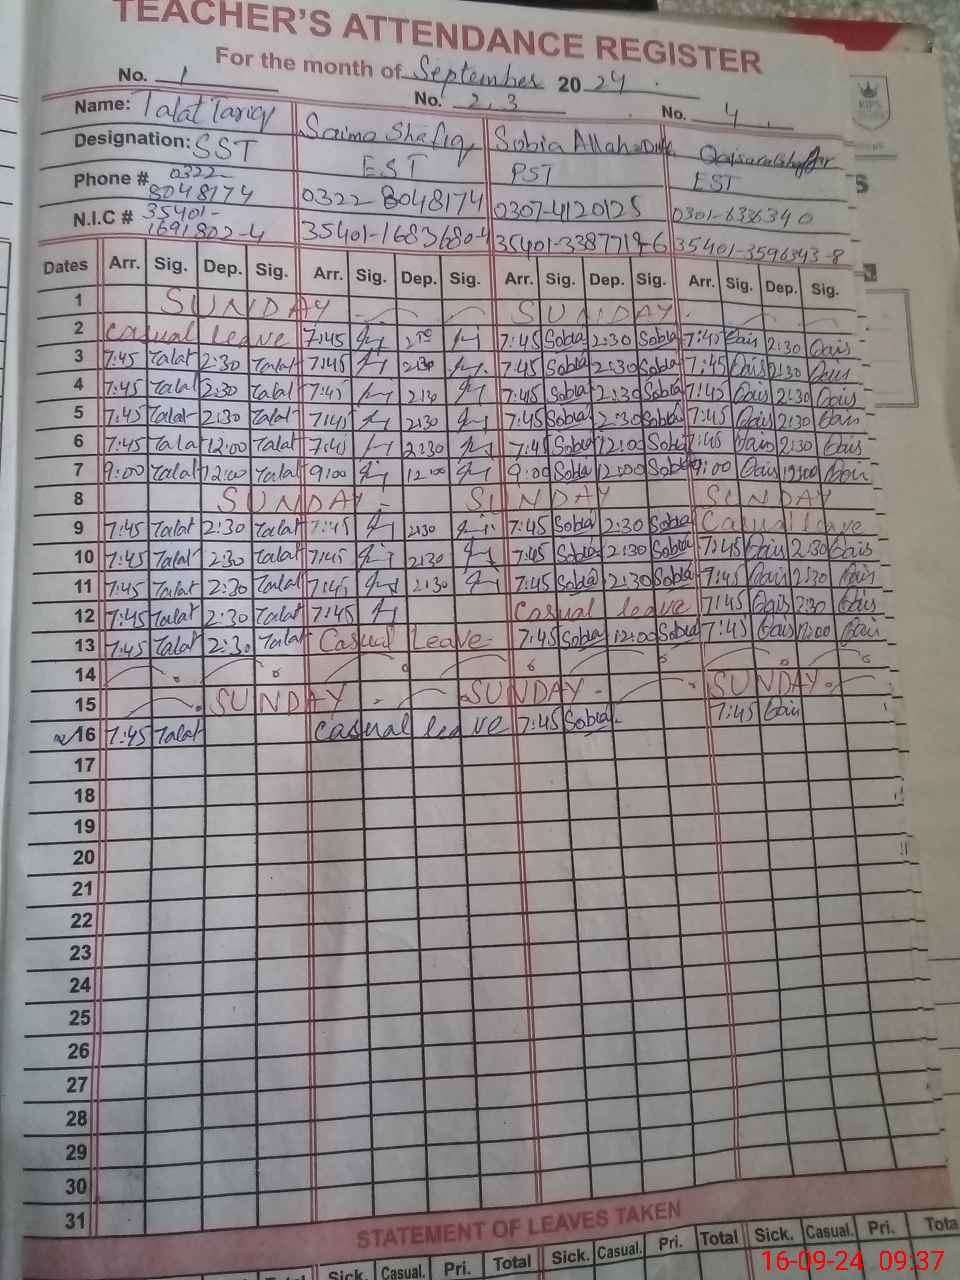 TEACHER'S ATTENDANCE REGISTER
For the month of September 2024.
No. 1 No. 2, 3 No. 4
Name: Talat Tariq Saima Shafiq Sobia Allah Ditta
Designation: SST EST PST EST
Phone # 0322-8048174 0322-8048174 0307-4120125 0301-636340
N.I.C # 35401-1691802-4 35401-1683680-4 35401-3387719-6 35401-3596343-8
Dates Arr. Sig. Dep. Sig. Arr. Sig. Dep. Sig. Arr. Sig. Dep. Sig. Arr. Sig. Dep. Sig.
1 SUNDAY SUNDAY.
2 Casual leave 7:45 7:45 Sobia 2:30 Sobia 7:45 Qais 2:30 Qais
3 7:45 Talat 2:30 Talat 7:45 2:30 7:45 Sobia 2:30 Sobia 7:45 Qais 2:30 Qais
4 7:45 Talat 2:30 Talat 7:45 2:30 7:45 Sobia 2:30 Sobia 7:45 Qais 2:30 Qais
5 7:45 Talat 2:30 Talat 7:45 2:30 7:45 Sobia 2:30 Sobia 7:45 Qais 2:30 Qais
6 7:45 Talat 12:00 Talat 7:45 2:30 7:45 Sobia 12:00 Sobia 7:45 Qais 2:30 Qais
7 9:00 Talat 12:00 Talat 9:00 12:00 9:00 Sobia 12:00 Sobia 9:00 Qais 12:00 Qais
8 SUNDAY SUNDAY SUNDAY
9 7:45 Talat 2:30 Talat 7:45 2:30 7:45 Sobia 2:30 Sobia Casual leave
10 7:45 Talat 2:30 Talat 7:45 2:30 7:45 Sobia 2:30 Sobia 7:45 Qais 2:30 Qais
11 7:45 Talat 2:30 Talat 7:45 2:30 7:45 Sobia 2:30 Sobia 7:45 Qais 2:30 Qais
12 7:45 Talat 2:30 Talat 7:45 Casual leave 7:45 Qais 2:30 Qais
13 7:45 Talat 2:30 Talat Casual Leave 7:45 Sobia 12:00 Sobia 7:45 Qais 12:00 Qais
14
15 SUNDAY SUNDAY SUNDAY
16 7:45 Talat Casual leave 7:45 Sobia 7:45 Qais
17
18
19
20
21
22
23
24
25
26
27
28
29
30
31
STATEMENT OF LEAVES TAKEN
Sick. Casual. Pri. Total Sick. Casual. Pri. Total Sick. Casual. Pri.
16-09-24 09:37